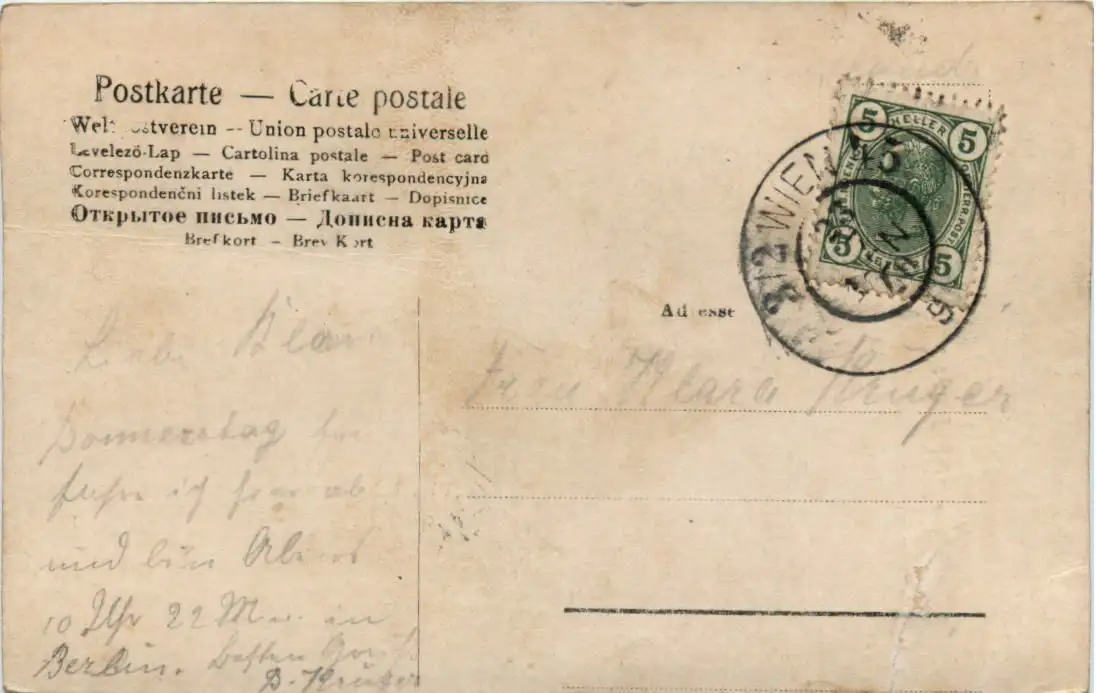 Postkarte — Carte postale
Weltpostverein -- Union postale universelle
Levelező-Lap — Cartolina postale — Post card
Correspondenzkarte — Karta korespondencyjna
Korespondenčni listek — Briefkaart — Dopisnice
Открытое письмо — Дописна карта
Brefkort — Brev Kort
5 HELLER 5
5 5
3/2 WIEN
Adresse
Frau Klara Krüger
Liebe Klara
Donnerstag
fahre ich ab
und bin Abends
10 Uhr 22 Min. in
Berlin. Besten Gruß
B. Krüger